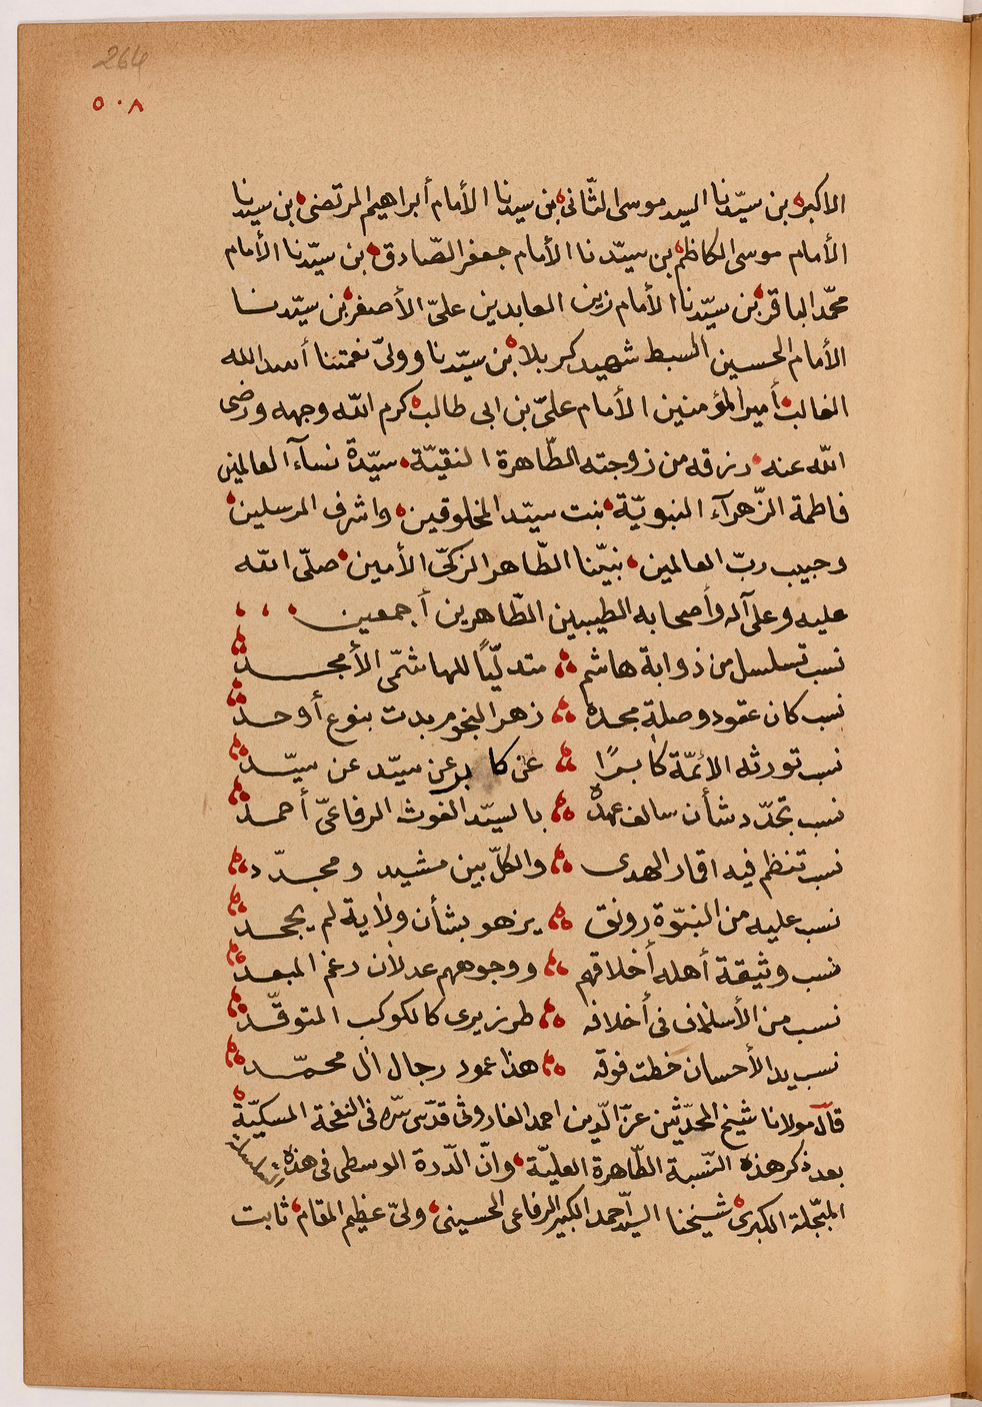 264
٥٠٨
الاكبر بن سيّدنا السيد موسى الثّانى بن سيدنا الأمام أبراهيم المرتضى بن سيدنا
الأمام موسى الكاظم بن سيّدنا الأمام جعفر الصّادق بن سيّدنا الأمام
محمّد الباقر بن سيّدنا الأمام زين العابدين علىّ الأصغر بن سيّدنا
الأمام الحسين السبط شهيد كربلا بن سيّدنا وولىّ نعمتنا أسد الله
الغالب أمير المؤمنين الأمام علىّ بن ابى طالب كرم الله وجهه ورضى
الله عنه رزقه من زوجته الطّاهرة النقيّة سيّدة نسآء العالمين
فاطمة الزّهرآء النبويّة بنت سيّد المخلوقين واشرف المرسلين
وحبيب ربّ العالمين نبيّنا الطّاهر الزكىّ الأمين صلّى الله
عليه وعلى آله وأصحابه الطيبين الطّاهرين أجمعين
نسب تسلسل من ذوابة هاشم متدلّيًا للهاشمّى الأمجد
نسب كان عقود وصلة مجده زهر النجوم بدت بنوع أوحد
نسب تورثه الائمّة كابرًا عن كابر عن سيّد عن سيّد
نسب تجدّد شأن سالف عهده بالسيّد الغوث الرفاعىّ أحمد
نسب تنظم فيه اقمار الهدى والكلّ بين مشيد ومجدّد
نسب عليه من النبوّة رونق يزهو بشأن ولاية لم يجحد
نسب وثيقة أهله أخلاقهم ووجوههم عدلان رغم المبعد
نسب من الأسلاف فى أخلافه طرز يرى كالكوكب المتوقّد
نسب يد الأحسان خطت فوقه هذا عمود رجال ال محمّد
قال مولانا شيخ المحدّثين عزّ الّدين احمد الفاروثى قدّس سّره فى النفحة المسكيّة
بعد ذكر هذه النّسبة الطّاهرة العليّة وانّ الّدرة الوسطى فى هذه السلسلة
المبّجلة الكبرى شيخنا السيّد أحمد الكبير الرفاعى الحسينى ولىّ عظيم المقام ثابت